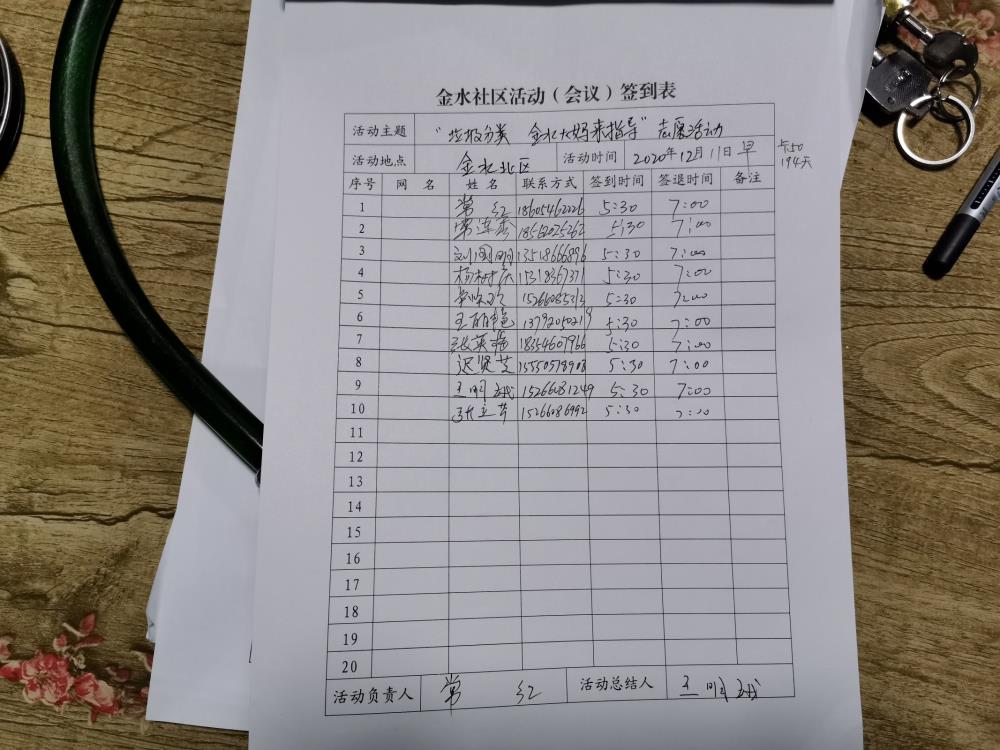 金水社区活动（会议）签到表
活动主题 “垃圾分类 金水大妈来指导”志愿活动
活动地点 金水北区 活动时间 2020年12月11日早
194天
序号 网 名 姓 名 联系方式 签到时间 签退时间 备注
1 常 红 18605462226 5:30 7:00
2 18562025262 5:30 7:00
3 刘国明 13518666896 5:30 7:00
4 杨树庆 5:30 7:00
5 15266085313 5:30 7:00
6 王丽艳 13792050219 5:30 7:00
7 张英强 18354607966 5:30 7:00
8 迟贤芝 15550578908 5:30 7:00
9 王明娥 15266081249 5:30 7:00
10 张立芳 15266086992 5:30 7:00
11
12
13
14
15
16
17
18
19
20
活动负责人 常 红 活动总结人 王明娥